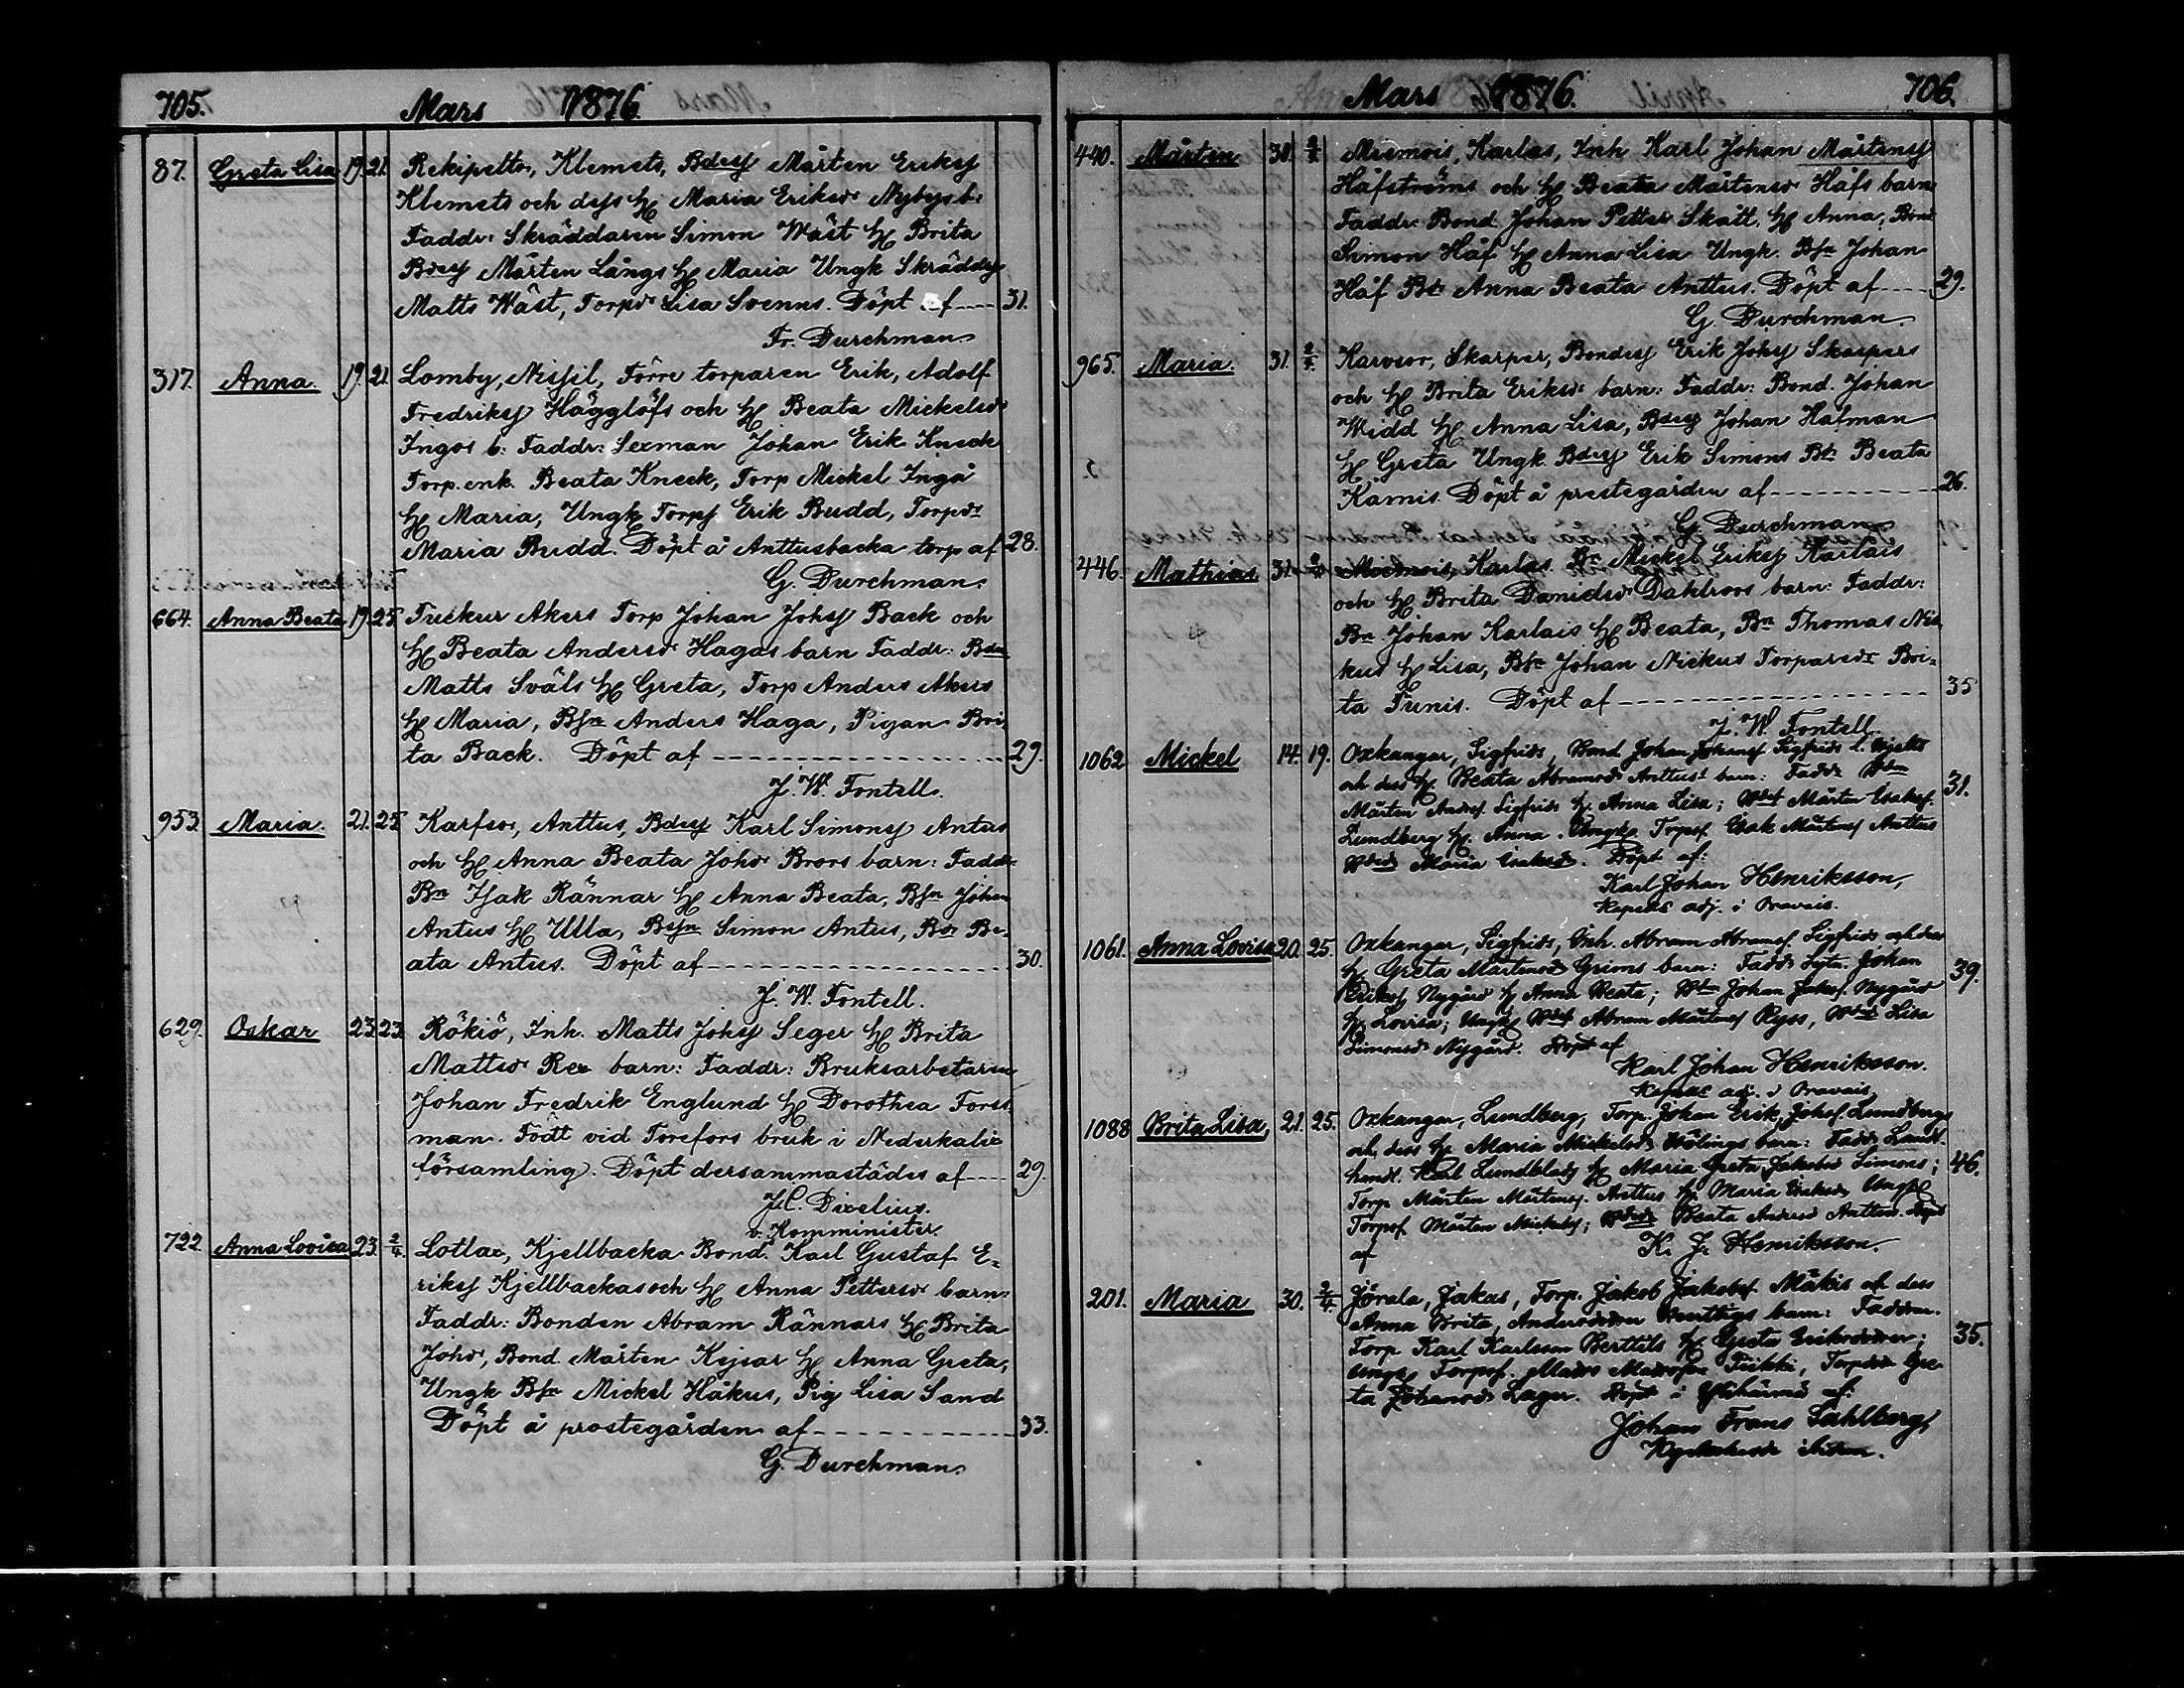 705. Mars 1876
87. Greta Lisa 19. 21. Rekipelto, Klemets, Bdesſ Mårten Eriksſ
Klemets och desſ Hſ Maria Eriksdr Nybys b:
Faddr: Skräddaren Simon Wäst Hſ Brita
Bdesſ Mårten Långs Hſ Maria Ungk Skräddsſ
Matts Wäst, Torpdr Lisa Svenns. Döpt af---- 31.
Fr. Durchman
317. Anna. 19. 21. Lomby, Nisſil, Förre torparen Erik, Adolf
Fredriksſ Hägglöfs och Hſ Beata Mickelsdr
Ingos b: Faddr: Sexman Johan Erik Kneck
Torp.enk. Beata Kneck, Torp Mickel Ingå
Hſ Maria, Ungk Torpsſ Erik Budd, Torpdr
Maria Budd. Döpt å Anttusbacka torp af 28.
G. Durchman.
664. Anna Beata 19. 25. Tuckur Akers Torp Johan Johsſ Back och
Hſ Beata Andersdr Hagas barn Faddr: Bden
Matts Sväls Hſ Greta, Torp Anders Akers
Hſ Maria, Bſn Anders Haga, Pigan Bri-
ta Back. Döpt af ---------- 29.
J. W. Fontell.
953. Maria. 21. 25. Karfsor, Anttus, Bdesſ Karl Simonsſ Antus
och Hſ Anna Beata Johdr Brors barn: Faddr:
Bn Isak Rännar Hſ Anna Beata, Bſn Johan
Antus Hſ Ulla, Bſn Simon Antus, Bdr Be-
ata Antus. Döpt af ---------- 30.
J. W. Fontell.
629. Oskar 23. 23. Rökiö, Inh. Matts Johsſ Seger Hſ Brita
Mattsdr Rex barn: Faddr: Bruksarbetaren
Johan Fredrik Englund Hſ Dorothea Fors-
man. Född vid Torefors bruk i Nederkalix
församling. Döpt dersammastädes af---- 29.
J. C. Dixelius.
v. Komminister.
722. Anna Lovisa 23. 2/4. Lotlax, Kjellbacka Bond. Karl Gustaf E-
riksſ Kjellbackas och Hſ Anna Pettersdr barn:
Faddr: Bonden Abram Rännars Hſ Brita
Johdr, Bond. Mårten Kejsar Hſ Anna Greta,
Ungk Bſn Mickel Håkus, Pig Lisa Sand
Döpt å prostegården af---------- 33.
G. Durchman.
Mars 1876. 706.
440. Mårten 30. 2/4 Miemois, Karlas, Inh Karl Johan Mårtensſ
Håfströms och Hſ Beata Mårtensdr Håfs barn
Faddr: Bond Johan Petter Skatt. Hſ Anna, Bond
Simon Håf Hſ Anna Lisa Ungk. Bſn Johan
Håf Bdr Anna Beata Anttus. Döpt af---- 29.
G. Durchman.
965. Maria. 31. 2/4. Karvsor, Skarper, Bondesſ Erik Johsſ Skarpers
och Hſ Brita Eriksdr barn: Faddr: Bond. Johan
Widd Hſ Anna Lisa, Bdesſ Johan Hafman
Hſ Greta Ungk. Bdesſ Erik Simons Bdr Beata
Kamis. Döpt å prestegården af---------- 26.
G. Durchman
446. Mathias 31. 2/4 Miemois, Karlas Bn Mickel Eriksſ Karlais
och Hſ Brita Danielsdr Dahlroos barn: Faddr:
Bn Johan Karlais Hſ Beata, Bn Thomas Nic-
kus Hſ Lisa, Bſn Johan Nickus Torparedr Bri-
ta Tunis. Döpt af ---------- 35
J. W. Fontell.
1062 Mickel 14. 19. Oxkangar, Sigfrids, Bond Johan Johansſ Sigfrids
och dess Hſ Beata Abramsdr Anttus' barn: Faddr Bden
Mårten Andersſ Sigfrids Hſ Anna Lisa; Bdesſ Mårten Isaksſ 31.
Lundberg Hſ. Anna. Ungk. Torpsſ. Isak Mårtensſ Anttus
Bdedr Maria Isaksdr. Döpt af:
Karl Johan Henriksson,
Kapells adj. i Oravais.
1061. Anna Lovisa 20. 25. Oxkangar, Sigfrids, Inh. Abram Abramsſ Sigfrids och dess
Hſ. Greta Mårtensdr Grims barn: Faddr Johan
Eriksſ Nygård Hſ Anna Beata; Bden Johan Jakosſ. Nygård 39.
Hſ. Lovisa; Ungk Bdesſ Abram Mårtensſ Ryss, Bdedr Lisa
Simonsdr Nygård. Döpt af
Karl Johan Henriksson.
Kapells adj. i Oravais.
1088 Brita Lisa, 21. 25. Oxkangar, Lundberg, Torp. Johan Erik Johsſ. Lundbergs
och dess Hſ Maria Mickelsdr barn: Faddr Landt-
handl. Karl Lundblad Hſ Maria Greta Jakobsdr Simons; 46.
Torp. Mårten Mårtensſ. Anttus Hſ. Maria Isaksdr Ungk
Torpsſ Mårten Mickelsſ; Bdedr Beata Andersdr Anttus. Döpt
af K. J. Henriksson.
201. Maria 30. 2/4. Jörala, Jakas, Torp. Jakob Jakobsſ. Mäkis och dess
Anna Brita, Andersdotter barn: Faddrar.
Torp. Karl Karlsson Berttils Hſ Greta Eriksdotter; 35.
Ungk Torpsſ. Matts Mattsson Tuikki, Torpdr Gre-
ta Johansdr Lager. Döpt i Ylihärmä af:
Johan Frans Sahlberg,